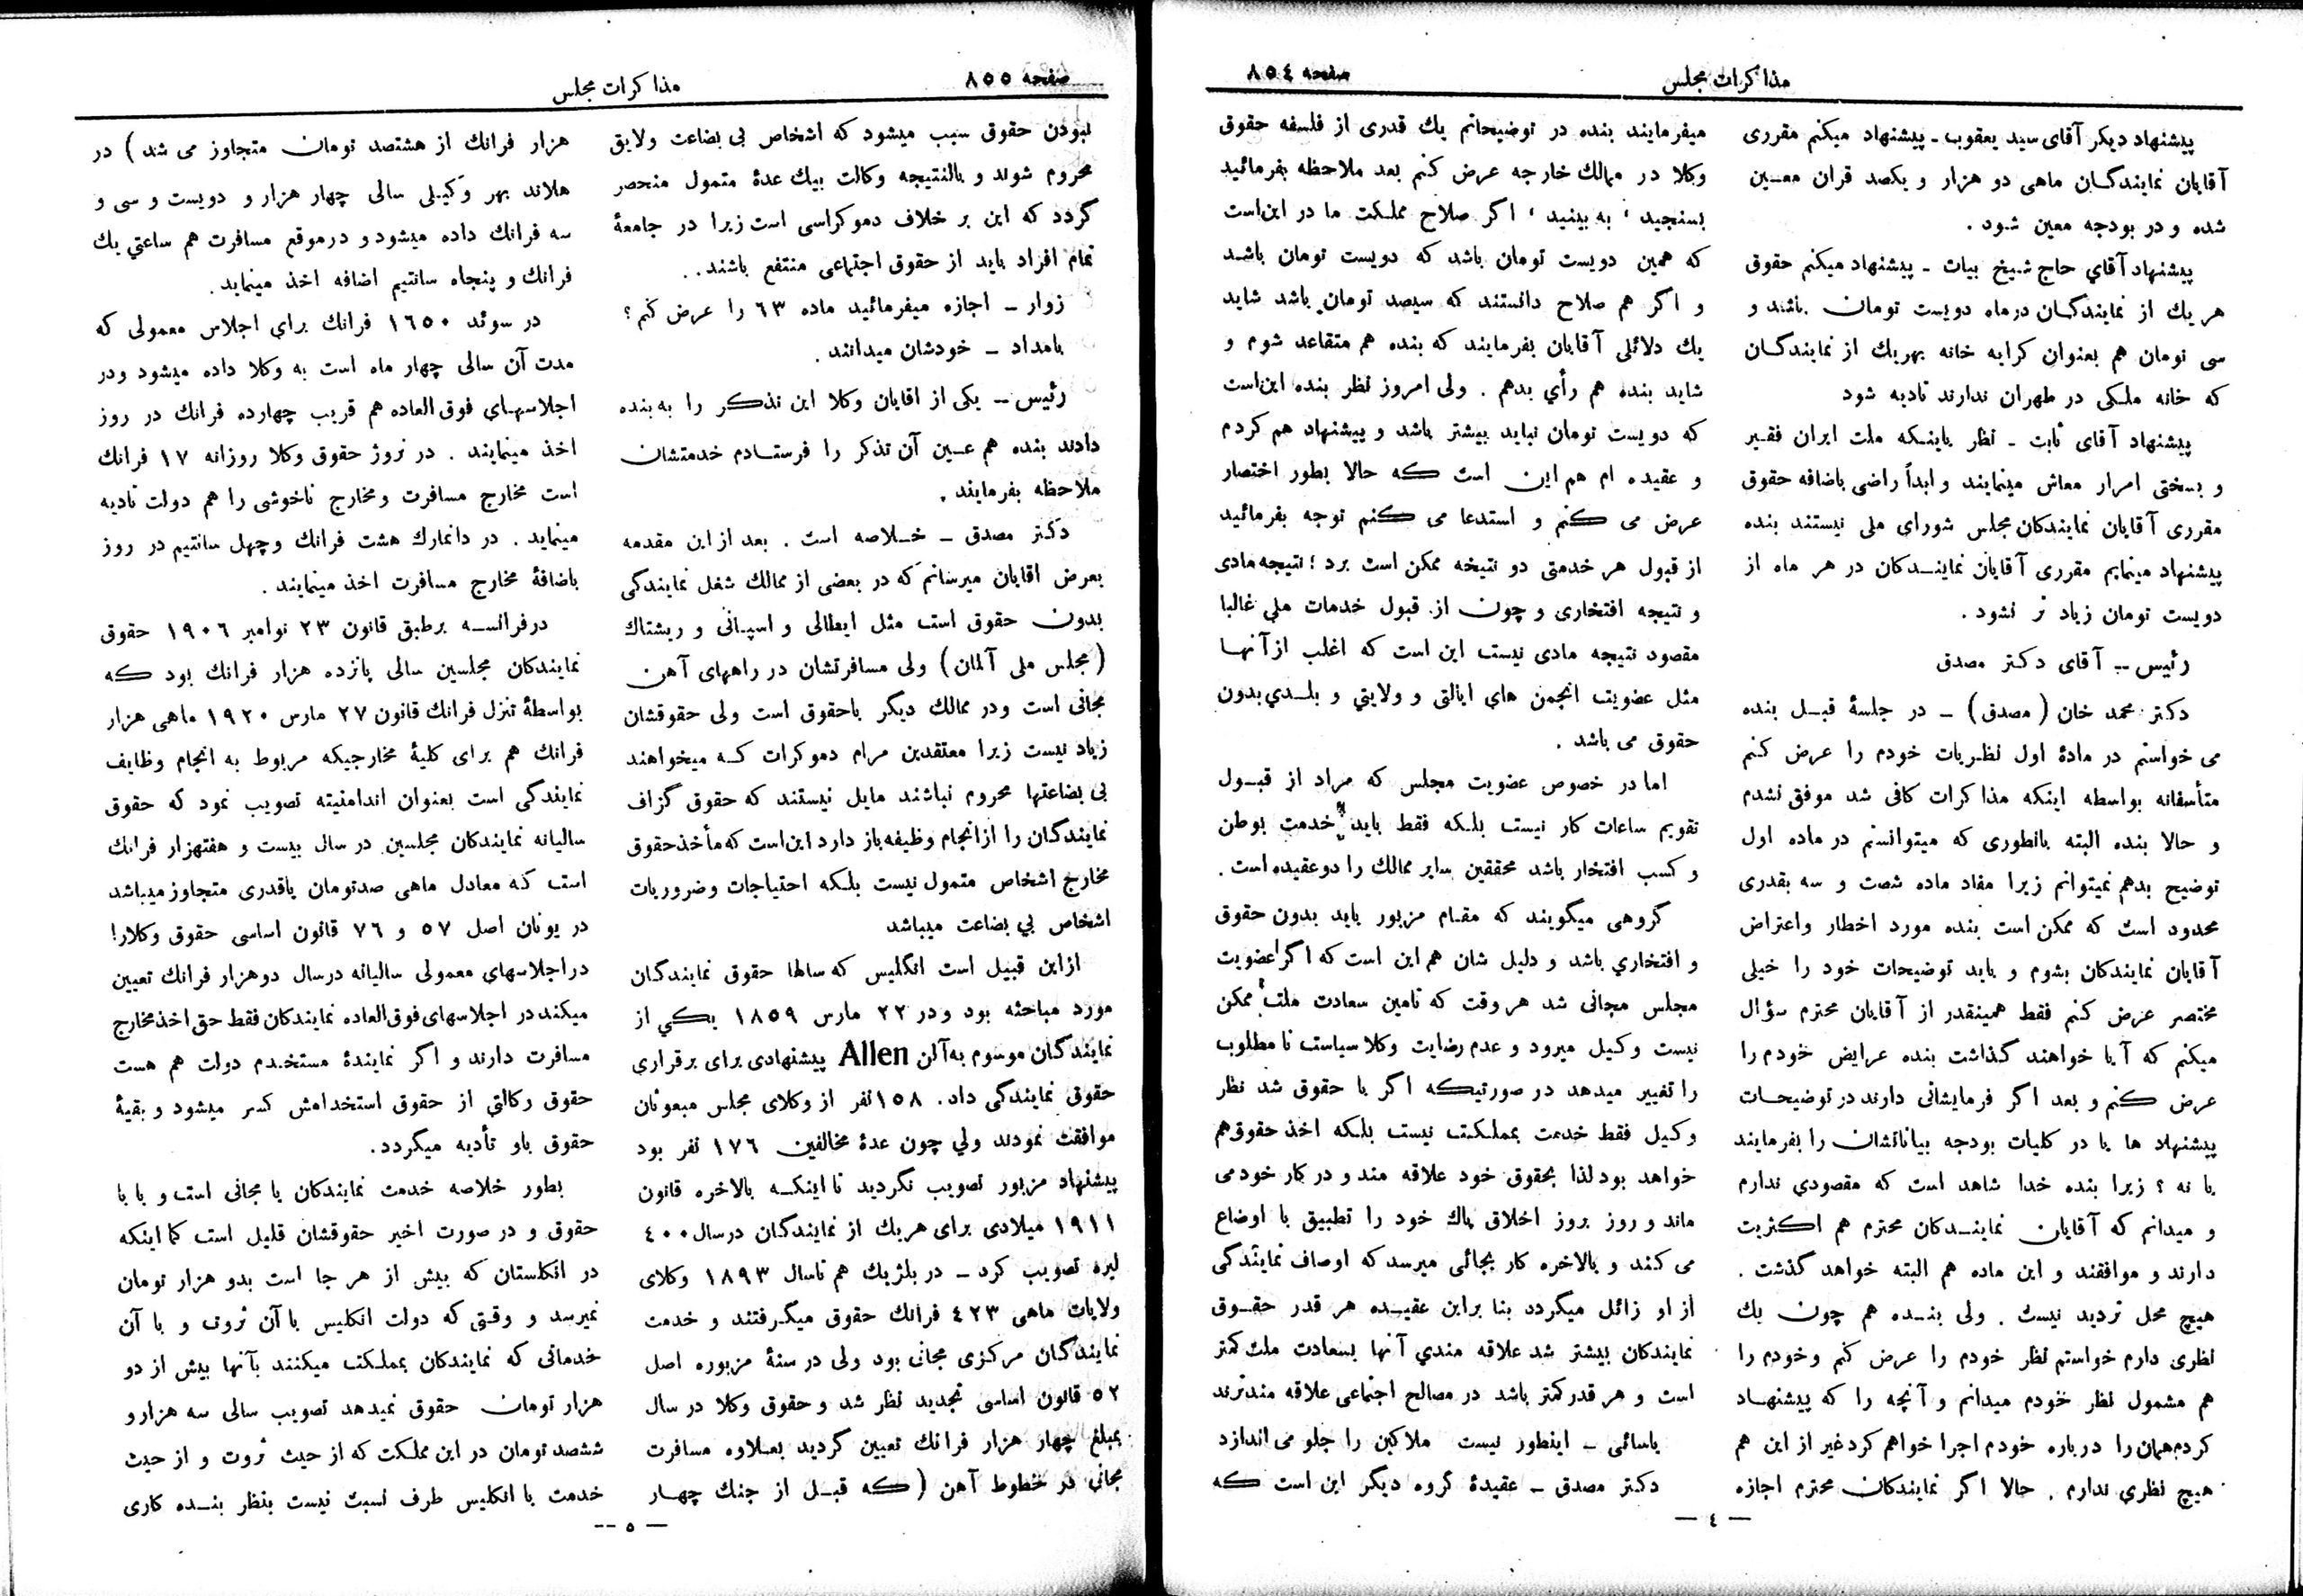 صفحه ٨٥٤
مذاكرات مجلس
پیشنهاد دیگر آقای سید یعقوب ـ پیشنهاد میكنم مقرری
آقایان نمایندگان ماهی دو هزار و یكصد قران معین
شده و در بودجه معین شود .
پیشنهاد آقاي حاج شیخ بیات ـ پیشنهاد میكنم حقوق
هر یك از نمایندگان در ماه دویست تومان باشد و
سی تومان هم بعنوان كرایه خانه بهریك از نمایندگان
كه خانه ملكی در طهران ندارند تادیه شود
پیشنهاد آقای ثابت ـ نظر باینكه ملت ایران فقیر
و بسختی امرار معاش مینمایند و ابداً راضی باضافه حقوق
مقرری آقایان نمایندكان مجلس شورای ملی نیستند بنده
پیشنهاد مینمایم مقرری آقایان نمایندكان در هر ماه از
دویست تومان زیاد تر نشود .
رئیس ـ آقای دكتر مصدق
دكتر محمد خان ( مصدق ) ـ در جلسهٔ قبل بنده
می خواستم در مادهٔ اول نظریات خودم را عرض كنم
متأسفانه بواسطه اینكه مذاكرات كافی شد موفق نشدم
و حالا بنده البته بانطوری كه میتوانستم در ماده اول
توضیح بدهم نمیتوانم زیرا مفاد ماده شصت و سه بقدری
محدود است كه ممكن است بنده مورد اخطار واعتراض
آقایان نمایندكان بشوم و باید توضیحات خود را خیلی
مختصر عرض كنم فقط همینقدر از آقایان محترم سؤال
میكنم كه آیا خواهند گذاشت بنده عرایض خودم را
عرض كنم و بعد اگر فرمایشاتی دارند در توضیحات
پیشنهاد ها یا در كلیات بودجه بیاناتشان را بفرمایند
یا نه ؟ زیرا بنده خدا شاهد است كه مقصودي ندارم
و میدانم كه آقایان نمایندكان محترم هم اكثریت
دارند و موافقند و این ماده هم البته خواهد گذشت .
هیچ محل تردید نیست . ولی بنده هم چون یك
نظری دارم خواستم نظر خودم را عرض كنم وخودم را
هم مشمول نظر خودم میدانم و آنچه را كه پیشنهاد
كردم همان را درباره خودم اجرا خواهم كرد غیر از این هم
هیچ نظري ندارم . حالا اگر نمایندكان محترم اجازه
میفرمایند بنده در توضیحاتم یك قدری از فلسفه حقوق
وكلا در ممالك خارجه عرض كنم بعد ملاحظه بفرمائید
بسنجید ، به بینید ، اگر صلاح مملكت ما در این است
كه همین دویست تومان باشد كه دویست تومان باشد
و اگر هم صلاح دانستند كه سیصد تومان باشد شاید
یك دلائلی آقایان بفرمایند كه بنده هم متقاعد شوم و
شاید بنده هم رأي بدهم . ولی امروز نظر بنده این است
كه دویست تومان نباید بیشتر باشد و پیشنهاد هم كردم
و عقیده ام هم این است كه حالا بطور اختصار
عرض می كنم و استدعا می كنم توجه بفرمائید
از قبول هر خدمتی دو نتیجه ممكن است برد ؛ نتیجه مادی
و نتیجه افتخاری و چون از قبول خدمات ملي غالبا
مقصود نتیجه مادی نیست این است كه اغلب از آنها
مثل عضویت انجمن هاي ایالتی و ولایتي و بلدي بدون
حقوق می باشد .
اما در خصوص عضویت مجلس كه مراد از قبول
تقویم ساعات كار نیست بلكه فقط باید خدمت بوطن
و كسب افتخار باشد محققین سایر ممالك را دو عقیده است .
گروهی میگویند كه مقام مزبور باید بدون حقوق
و افتخاري باشد و دلیل شان هم این است كه اگر عضویت
مجلس مجانی شد هر وقت كه تامین سعادت ملت ممكن
نیست وكیل میرود و عدم رضایت وكلا سیاست نا مطلوب
را تغییر میدهد در صورتیكه اگر با حقوق شد نظر
وكیل فقط خدمت بمملكت نیست بلكه اخذ حقوق هم
خواهد بود لذا بحقوق خود علاقه مند و در كار خود می
ماند و روز بروز اخلاق پاك خود را تطبیق با اوضاع
می كند و بالاخره كار بجائی میرسد كه اوصاف نمایندگی
از او زائل میگردد بنا بر این عقیده هر قدر حقوق
نمایندكان بیشتر شد علاقه مندي آنها بسعادت ملت كمتر
است و هر قدر كمتر باشد در مصالح اجتماعی علاقه مندترند
یاسائی ـ اینطور نیست ملاكین را جلو می اندازد
دكتر مصدق ـ عقیدهٔ گروه دیگر این است كه
— ٤ —
صفحه ٨٥٥
مذاكرات مجلس
نبودن حقوق سبب میشود كه اشخاص بی بضاعت ولایق
محروم شوند و بالنتیجه وكالت بیك عدهٔ متمول منحصر
گردد كه این بر خلاف دموكراسی است زیرا در جامعهٔ
تمام افراد باید از حقوق اجتماعی منتفع باشند. .
زوار ـ اجازه میفرمائید ماده ٦٣ را عرض كنم ؟
بامداد ـ خودشان میدانند .
رئیس ـ یكی از اقایان وكلا این تذكر را به بنده
دادند بنده هم عین آن تذكر را فرستادم خدمتشان
ملاحظه بفرمایند .
دكتر مصدق ـ خلاصه است . بعد از این مقدمه
بعرض اقایان میرسانم كه در بعضی از ممالك شغل نمایندگی
بدون حقوق است مثل ایطالی و اسپانی و ریشتاك
( مجلس ملی آلمان ) ولی مسافرتشان در راههای آهن
مجانی است ودر ممالك دیگر باحقوق است ولی حقوقشان
زیاد نیست زیرا معتقدین مرام دموكرات كه میخواهند
بی بضاعتها محروم نباشند مایل نیستند كه حقوق گزاف
نمایندگان را از انجام وظیفه باز دارد این است كه مأخذ حقوق
مخارج اشخاص متمول نیست بلكه احتیاجات وضروریات
اشخاص بي بضاعت میباشد
ازاین قبیل است انگلیس كه سالها حقوق نمایندگان
مورد مباحثه بود و در ٢٢ مارس ١٨٥٩ یكي از
نمایندگان موسوم به آلن Allen پیشنهادی برای برقراری
حقوق نمایندگی داد. ١٥٨ نفر از وكلای مجلس مبعوثان
موافقت نمودند ولي چون عدهٔ مخالفین ١٧٦ نفر بود
پیشنهاد مزبور تصویب نگردید تا اینكه بالاخره قانون
١٩١١ میلادی برای هریك از نمایندگان در سال ٤٠٠
لیره تصویب كرد ـ در بلژیك هم تا سال ١٨٩٣ وكلای
ولایات ماهی ٤٢٣ فرانك حقوق میگرفتند و خدمت
نمایندگان مركزی مجانی بود ولی در سنهٔ مزبوره اصل
٥٢ قانون اساسی تجدید نظر شد و حقوق وكلا در سال
بمبلغ چهار هزار فرانك تعیین گردید بعلاوه مسافرت
مجانی در خطوط آهن ( كه قبل از جنك چهار
هزار فرانك از هشتصد تومان متجاوز می شد ) در
هلاند بهر وكیلی سالی چهار هزار و دویست و سی و
سه فرانك داده میشود و درموقع مسافرت هم ساعتي یك
فرانك و پنجاه سانتیم اضافه اخذ مینماید .
در سوئد ١٦٥٠ فرانك براي اجلاس معمولی كه
مدت آن سالی چهار ماه است به وكلا داده میشود ودر
اجلاسهاي فوق العاده هم قریب چهارده فرانك در روز
اخذ مینمایند . در نروژ حقوق وكلا روزانه ١٧ فرانك
است مخارج مسافرت ومخارج ناخوشی را هم دولت تادیه
مینماید . در دانمارك هشت فرانك وچهل سانتیم در روز
باضافهٔ مخارج مسافرت اخذ مینمایند .
درفرانسه برطبق قانون ٢٣ نوامبر ١٩٠٦ حقوق
نمایندكان مجلسین سالی پانزده هزار فرانك بود كه
بواسطهٔ تنزل فرانك قانون ٢٧ مارس ١٩٢٠ ماهی هزار
فرانك هم برای كلیهٔ مخارجیكه مربوط به انجام وظایف
نمایندگی است بعنوان اندامنیته تصویب نمود كه حقوق
سالیانه نمایندكان مجلسین در سال بیست و هفتهزار فرانك
است كه معادل ماهی صدتومان یاقدری متجاوز میباشد
در یونان اصل ٥٧ و ٧٦ قانون اساسی حقوق وكلارا
در اجلاسهاي معمولی سالیانه درسال دوهزار فرانك تعیین
میكند در اجلاسهای فوق العاده نمایندكان فقط حق اخذ مخارج
مسافرت دارند و اگر نمایندهٔ مستخدم دولت هم هست
حقوق وكالتي از حقوق استخدامش كسر میشود و بقیهٔ
حقوق باو تأدیه میگردد.
بطور خلاصه خدمت نمایندكان یا مجانی است و یا با
حقوق و در صورت اخیر حقوقشان قلیل است كما اینكه
در انكلستان كه بیش از هر جا است بدو هزار تومان
نمیرسد و وقتی كه دولت انكلیس با آن ثروت و با آن
خدماتی كه نمایندكان بمملكت میكنند بآنها بیش از دو
هزار تومان حقوق نمیدهد تصویب سالی سه هزار و
ششصد تومان در این مملكت كه از حیث ثروت و از حیث
خدمت با انكلیس طرف نسبت نیست بنظر بنده كاری
— ٥ --